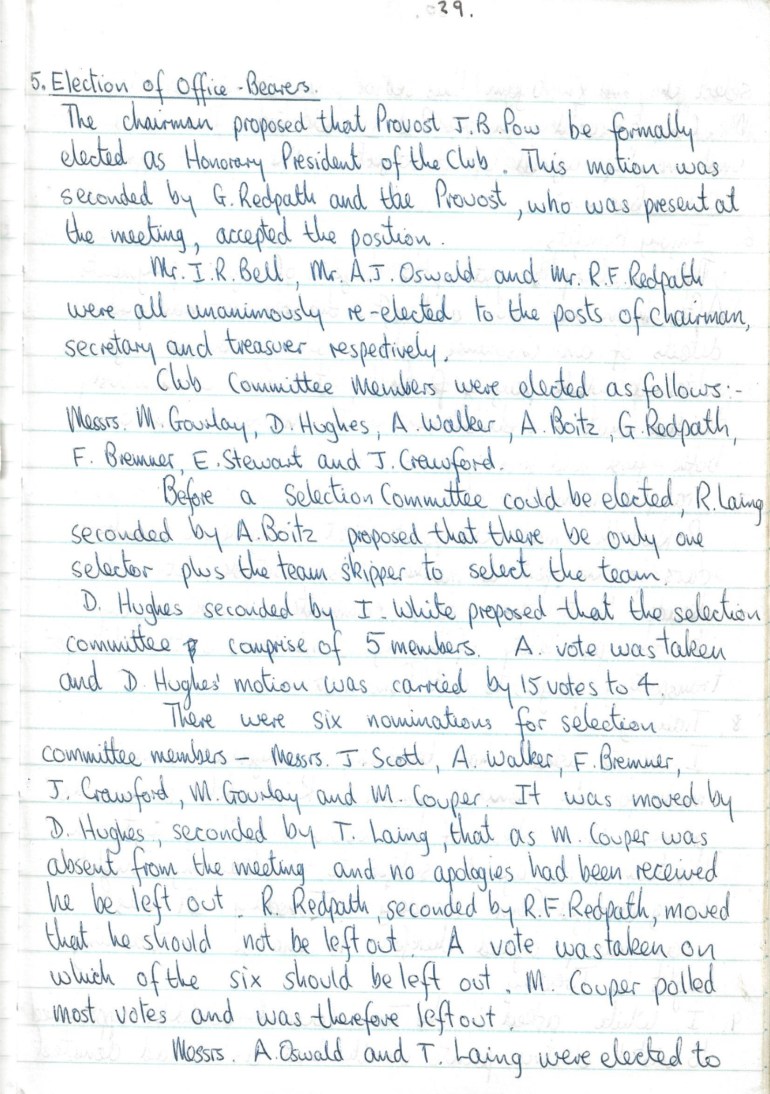 29.
5. Election of Office-Bearers.
The chairman proposed that Provost J.B. Pow be formally
elected as Honorary President of the Club. This motion was
seconded by G. Redpath and the Provost, who was present at
the meeting, accepted the position.
Mr. I.R. Bell, Mr. A.J. Oswald and Mr. R.F. Redpath
were all unanimously re-elected to the posts of chairman,
secretary and treasurer respectively.
Club Committee Members were elected as follows:-
Messrs. M. Gourlay, D. Hughes, A. Walker, A. Boitz, G. Redpath,
F. Bremner, E. Stewart and J. Crawford.
Before a Selection Committee could be elected, R. Laing
seconded by A. Boitz proposed that there be only one
selector plus the team skipper to select the team.
D. Hughes seconded by I. White proposed that the selection
committee comprise of 5 members. A vote was taken
and D. Hughes' motion was carried by 15 votes to 4.
There were six nominations for selection
committee members - Messrs. J. Scott, A. Walker, F. Bremner,
J. Crawford, M. Gourlay and M. Couper. It was moved by
D. Hughes, seconded by T. Laing, that as M. Couper was
absent from the meeting and no apologies had been received
he be left out. R. Redpath, seconded by R.F. Redpath, moved
that he should not be left out. A vote was taken on
which of the six should be left out. M. Couper polled
most votes and was therefore left out.
Messrs. A. Oswald and T. Laing were elected to